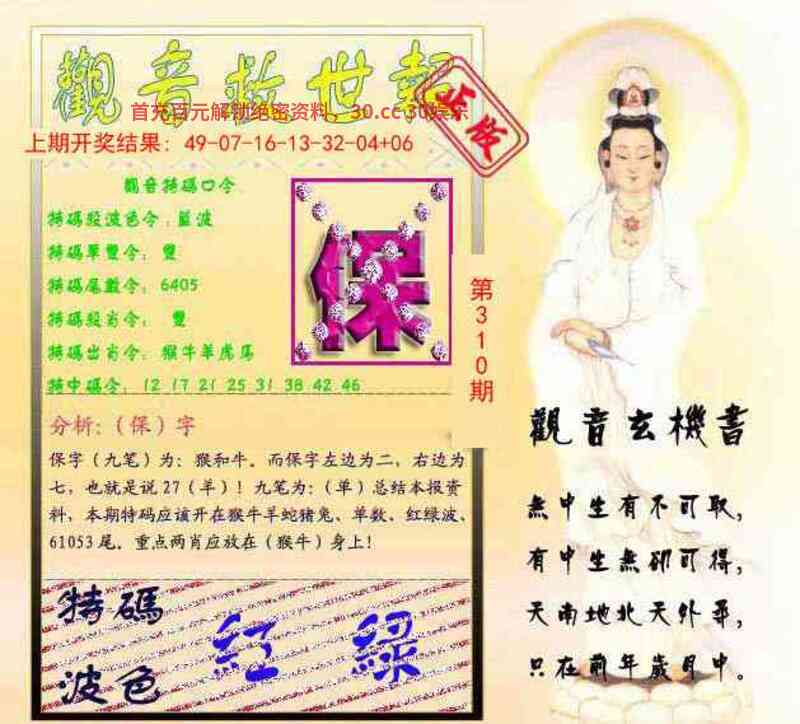 觀音救世報
首充百元解锁绝密资料、30.cc 30娱乐
上期开奖结果：49-07-16-13-32-04+06
觀音特碼口令
特碼殺波色令：藍波
特碼單雙令：雙
特碼尾數令：6405
特碼殺肖令：雙
特碼出肖令：猴牛羊虎馬
特中碼令：12 17 21 25 31 38 42 46
保
第310期
分析：（保）字
保字（九笔）为：猴和牛。而保字左边为二，右边为
七，也就是说27（羊）！九笔为：（单）总结本报资
料，本期特码应该开在猴牛羊蛇猪兔、单数。红绿波、
61053尾。重点两肖应放在（猴牛）身上！
特碼
波色
紅 綠
觀音玄機書
無中生有不可取，
有中生無卻可得，
天南地北天外尋，
只在前年歲月中。